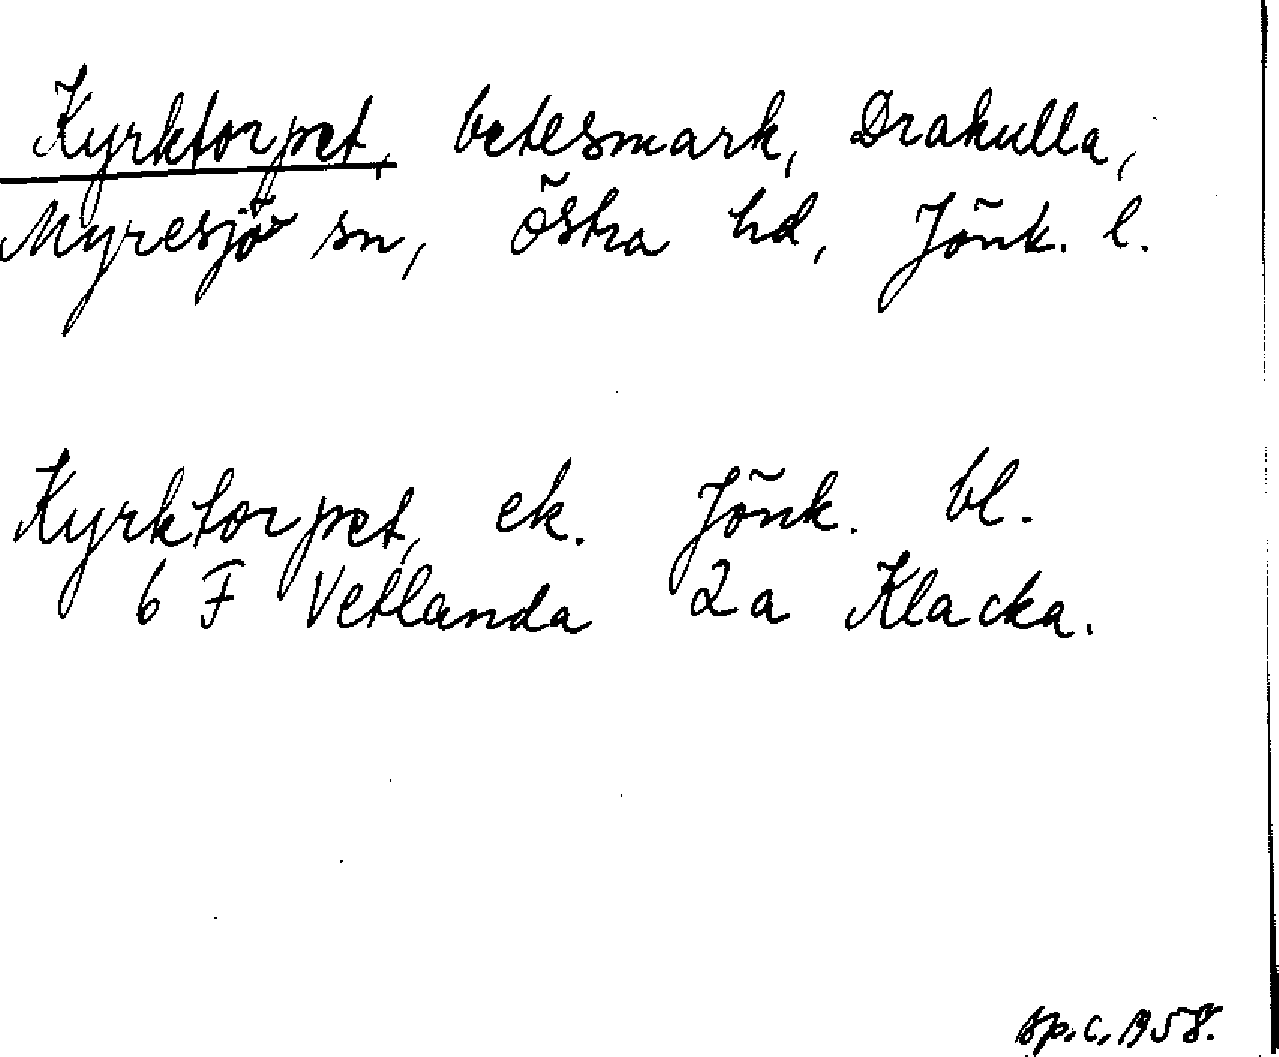 Kyrktorpet, betesmark, Drakulla,
Myresjö sn, Östra hd, Jönk. l.
Kyrktorpet, ek. Jönk. bl.
6 F Vetlanda 2a Klacka.
Sp.c. 1958.